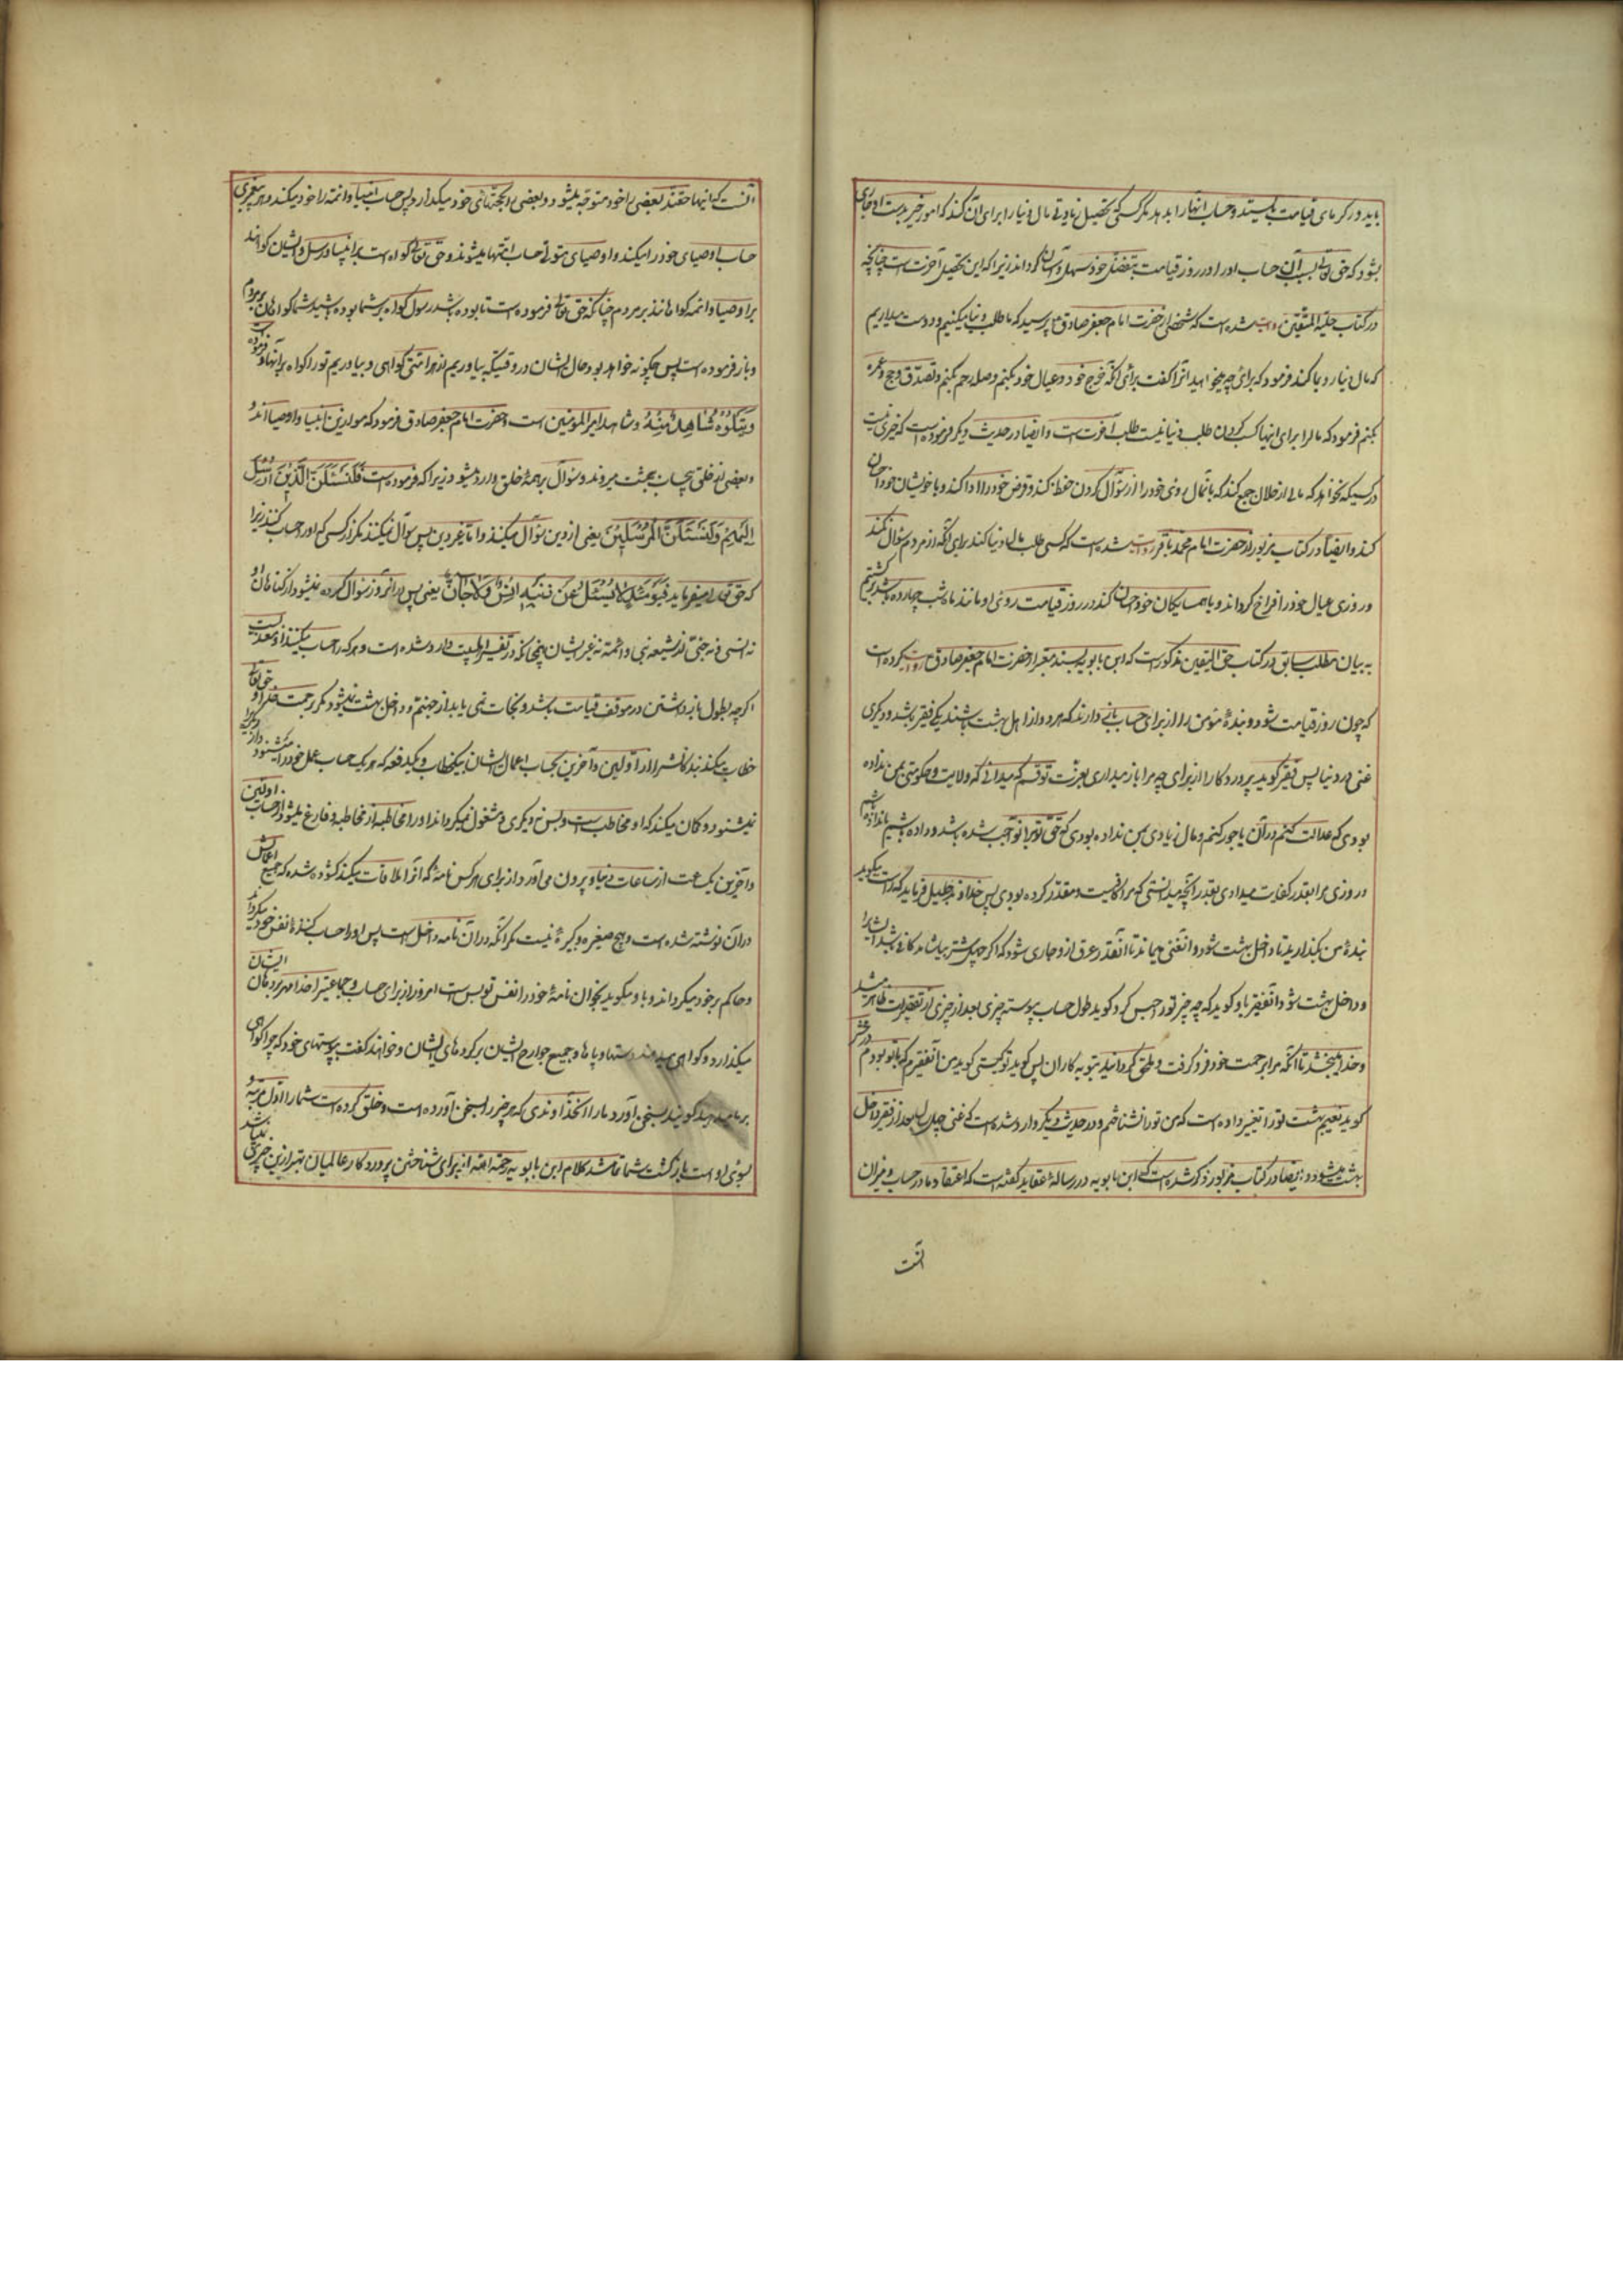 باید در گرمای قیامت بایستد و حساب انها را بدهد مگر کسی که تحصیل زیادتی مال دنیا را برای آن کند که امور خیر بدست او جاری
بشود که حق تعالی بسبب آن حساب او را در روز قیامت بتفضل خود سهل و آسان گرداند زیرا که این تحصیل آخرت است چنانچه
در کتاب حلیة المتقین روایت شده است که شخصی از حضرت امام جعفر صادق ع پرسید که ما طلب دنیا میکنیم و دوست میداریم
که مال دنیا رو بما کند فرمود که برای چه میخواهید انرا گفت برای آنکه خرج خود و عیال خود بکنم و صله رحم بکنم و تصدق و حج و عمره
بکنم فرمود که مال را برای اینها کسب کردن طلب دنیا نیست طلب آخرت است و ایضا در حدیث دیگر فرموده است که خیری نیست
در کسیکه نخواهد که مالی از حلال جمع کند که بآنمال روی خود را از سؤال کردن حفظ کند و قرض خود را ادا کند و با خویشان خود احسان
کند و ایضا در کتاب مزبور از حضرت امام محمد باقر روایت شده است که کسی طلب مال دنیا کند برای آنکه از مردم سؤال نکند
و روزی عیال خود را فراخ گرداند و با همسایگان خود احسان کند در روز قیامت روی او مانند ماه شب چهارده باشد برگشتیم
به بیان مطلب سابق در کتاب حق الیقین مذکور است که ابن بابویه بسند معتبر از حضرت امام جعفر صادق ع روایت کرده است
که چون روز قیامت شود دو بندهٔ مؤمن را از برای حساب باز دارند که هر دو از اهل بهشت باشند یکی فقیر باشد و دیگری
غنی در دنیا پس فقیر گوید پروردگارا از برای چه مرا باز میداری بعزت تو قسم که میدانی که ولایت و حکومتی بمن نداده
بودی که عدالت کنم در آن یا جور کنم و مال زیادی بمن نداده بودی که حق تو برآن واجب شده باشد و داده باشم یا نداده باشم
و روزی مرا بقدر کفایت میدادی بقدر آنچه میدانستی که مرا کافیست و مقدر کرده بودی پس خداوند جلیل فرماید که راست میگوید
بندهٔ من بگذارید تا داخل بهشت شود و انغنی میماند تا آنقدر عرق از او جاری شود که اگر چهل شتر بیاشامد کافی باشد ایشانرا
و داخل بهشت شود انفقیر باو گوید که چه چیز تو را حبس کرد گوید طول حساب پیوسته چیزی بعد از چیزی از تقصیرات ظاهر میشد
و خدا میبخشد تا آنکه مرا برحمت خود فرو گرفت و ملحق گردانید بتوبه کاران پس گوید تو کیستی گوید من آنفقیرم که با تو بودم در محشر
گوید نعیم بهشت تو را تغییر داده است که من تو را نشناختم و در حدیث دیگر وارد شده است که غنی چهل سال بعد از فقیر داخل
بهشت میشود و ایضا در کتاب مزبور ذکر شده است که ابن بابویه در رسالهٔ عقاید گفته است که اعتقاد ما در حساب و میزان
انست
انست که اینها حقند بعضی را خود متوجه میشود و بعضی را بحجتهای خود میگذارد پس حساب انبیا و ائمه را خود میکند و هر پیغمبری
حساب اوصیای خود را میکند و اوصیای متولی حساب امتها میشوند و حق تعالی گواه است بر انبیا و رسل و ایشان گواهند
بر اوصیا و ائمه گواهانند بر مردم چنانکه حق تعالی فرموده است تا بوده باشد رسول گواه بر شما بوده باشید شما گواهان بر مردم
و باز فرموده است پس چگونه خواهد بود حال ایشان در وقتیکه بیاوریم از هر امتی گواهی و بیاوریم تو را گواه بر آنها و فرموده است
وَیَتْلُوهُ شَاهِدٌ مِنْهُ و شاهد امیر المؤمنین است و حضرت امام جعفر صادق فرمود که موازین انبیا و اوصیااند
و بعضی از خلق بیحساب ببهشت میروند و سؤال بر همهٔ خلق وارد میشود زیرا که فرموده است فَلَنَسْئَلَنَّ الَّذِینَ اُرْسِلَ
اِلَیْهِمْ وَلَنَسْئَلَنَّ الْمُرْسَلِینَ یعنی از دین سؤال میکنند و اما غیر دین پس سؤال نمیکنند مگر از کسی که او را حساب کنند زیرا
که حق تعالی میفرماید فَیَوْمَئِذٍ لَا یُسْئَلُ عَنْ ذَنْبِهِ اِنْسٌ وَلَا جَانٌّ یعنی پس در انروز سؤال کرده نمیشود از گناهان او
نه انسی و نه جنی از شیعه نبی و ائمه نه غیر ایشان چنانکه در تفسیر اهلبیت وارد شده است و هر که را حساب میکنند او معذب است
اگرچه بطول بازداشتن در موقف قیامت باشد و نجات نمی یابد از جهنم و داخل بهشت نمیشود مگر برحمت خدا و حق تعالی
خطاب میکند بندگانش را از اولین و آخرین بحساب اعمال ایشان بیکخطاب و یکدفعه که هر یک حساب عمل خود را میشنود و از دیگری را
نمیشنود و گمان میکند که او مخاطب است و بس نه دیگری و مشغول نمیگرداند او را مخاطبه از مخاطبه و فارغ میشود از حساب اولین
و آخرین یکساعت از ساعات دنیا و بیرون می آورد از برای هر کس نامهٔ که انرا ملاقات میکند گشوده شده که جمیع اعمالش
در آن نوشته شده است و هیچ صغیره و کبیرهٔ نیست مگر آنکه در ان نامه داخل است پس او را حساب کنندهٔ نفس خود میگرداند
و حاکم بر خود میگرداند و باو میگوید بخوان نامهٔ خود را نفس تو بس است امروز از برای حساب و جماعتی را خدا مهر بر دهان ایشان
میگذارد و گواهی میدهند دستها و پاها و جمیع جوارح ایشان بر کرده های ایشان و خواهند گفت بپوستهای خود که چرا گواهی
بر ما میدهید گویند بسخن آورد ما را انخداوندی که هر چیز را بسخن آورده است و خلق کرده است شما را اول مرتبه و
بسوی اوست بازگشت شما تمام شد کلام ابن بابویه رحمة الله از برای شناختن پروردگار عالمیان بهتر ازین چیزی نمیباشد